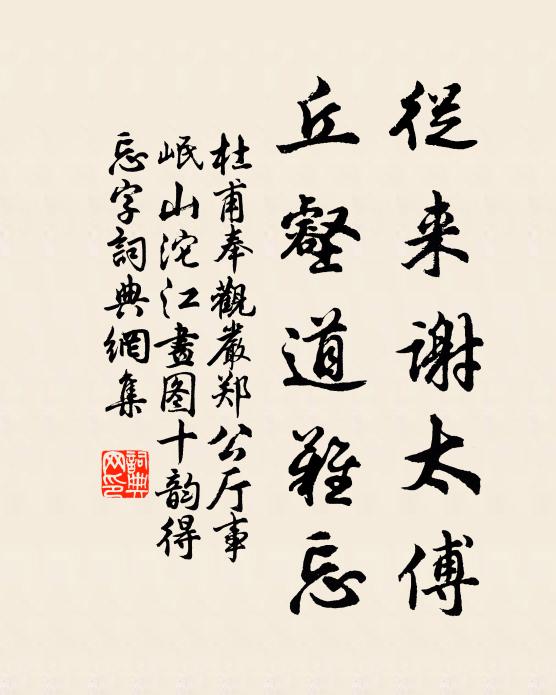 從来謝太傅
丘壑道難忘
杜甫奉觀嚴郑公厅事
岷山沱江畫图十韵得
忘字詞典網集
詞典
网印